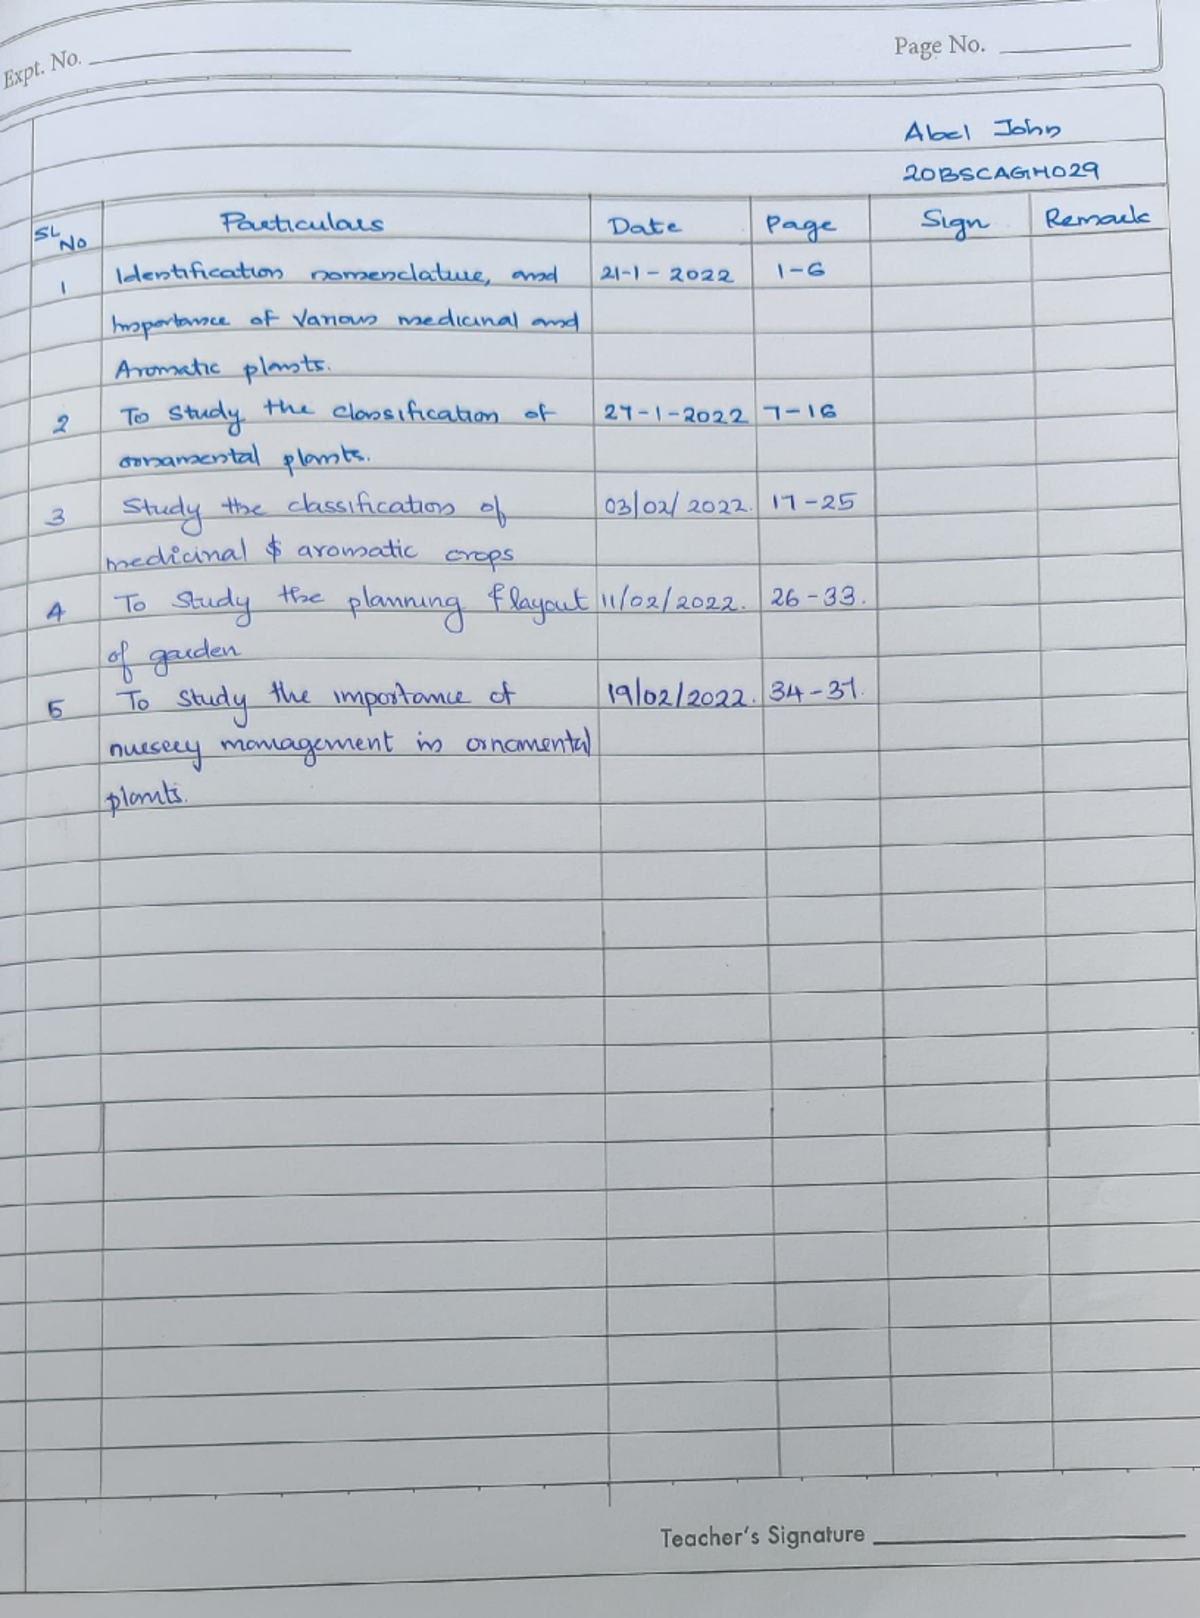 Expt. No.
Page No.
Abel John
20BSCAGH029
SL No Particulars Date Page Sign Remark
1 Identification nomenclature, and 21-1-2022 1-6
Importance of Various medicinal and
Aromatic plants.
2 To Study the classification of 27-1-2022 7-16
ornamental plants.
3 Study the classification of 03/02/2022. 17-25
medicinal & aromatic crops
4 To Study the planning & layout 11/02/2022. 26-33.
of garden
5 To Study the importance of 19/02/2022. 34-37.
nursery management in ornamental
plants.
Teacher's Signature